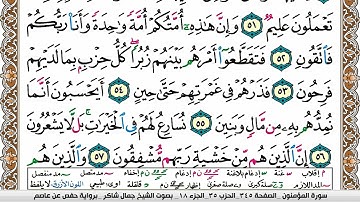 تَعْمَلُونَ عَلِيمٌ ٥١ وَإِنَّ هَٰذِهِۦٓ أُمَّتُكُمْ أُمَّةً وَٰحِدَةً وَأَنَا۠ رَبُّكُمْ
فَٱتَّقُونِ ٥٢ فَتَقَطَّعُوٓا۟ أَمْرَهُم بَيْنَهُمْ زُبُرًا كُلُّ حِزْبٍۭ بِمَا لَدَيْهِمْ
فَرِحُونَ ٥٣ فَذَرْهُمْ فِى غَمْرَتِهِمْ حَتَّىٰ حِينٍ ٥٤ أَيَحْسَبُونَ أَنَّمَا
نُمِدُّهُم بِهِۦ مِن مَّالٍ وَبَنِينَ ٥٥ نُسَارِعُ لَهُمْ فِى ٱلْخَيْرَٰتِ بَل لَّا يَشْعُرُونَ
٥٦ إِنَّ ٱلَّذِينَ هُم مِّنْ خَشْيَةِ رَبِّهِم مُّشْفِقُونَ ٥٧ وَٱلَّذِينَ هُم
سورة المؤمنون . الصفحة ٣٤٥ . الحزب ٣٥ . الجزء ١٨ . بصوت الشيخ جمال شاكر . برواية حفص عن عاصم